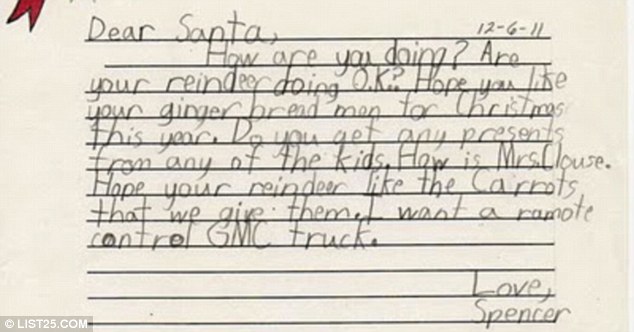 12-6-11
Dear Santa,
How are you doing? Are
your reindeer doing O.K.? Hope you like
your ginger bread man for Christmas
this year. Do you get any presents
from any of the kids. How is Mrs.Clouse.
Hope your reindeer like the Carrots
that we give them. I want a ramote
control GMC truck.
Love,
Spencer
© LIST25.COM